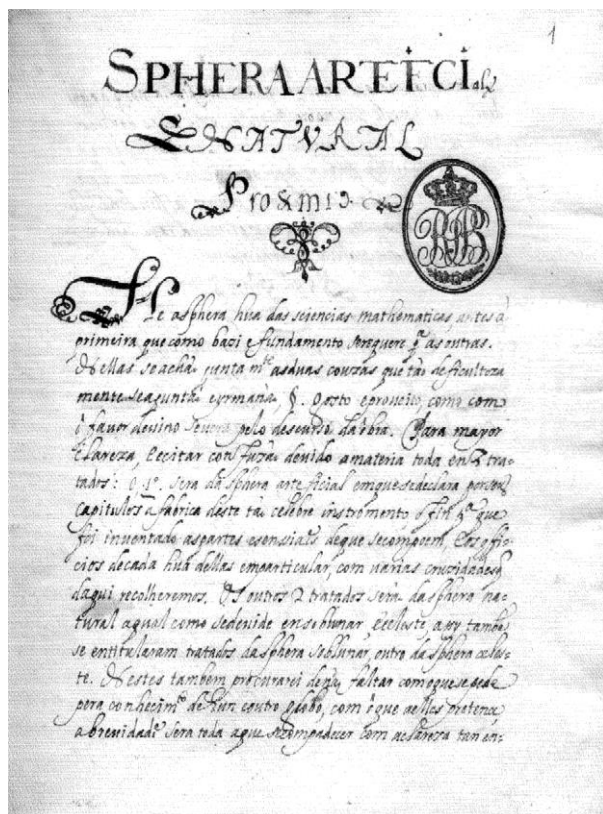 1
SPHERA ARTEFCIal
E NATVRAL
Proemio.
He asphera hũa das sciencias mathematicas, antes a
primeira que como bazi e fundamento serequere pª as outras.
Nellas se acha juntamte as duas couzas que tão deficultoza
mente se agunta e yrmana, §. gosto e proveito, como com
o favor devino se vera pelo descurso da obra. Para mayor
clareza, e evitar confuzã devido a materia toda en 3 tra-
tados: o 1º sera da sphera arteficial em que se declara per seus
capitulos a fabrica deste tã celebre instromento, o fin pª que
foi inventado as partes esensiais de que se compoem, e os ofi-
cios de cada hũa dellas em particular, com varias cruzidades q
daqui recolheremos. Os outros 2 tratados serã da sphera na-
tural a qual como se devide en soblunar e celeste, assy tambe
se entitularam tratados da sphera soblunar, outro da sphera celes-
te. Nestes tambem procurarei de nã faltar com o que se pede
pera conhecimto de hun e outro globo, com o que a elles pretence
a brevidade sera toda a que se compadecer com a clareza tan en-